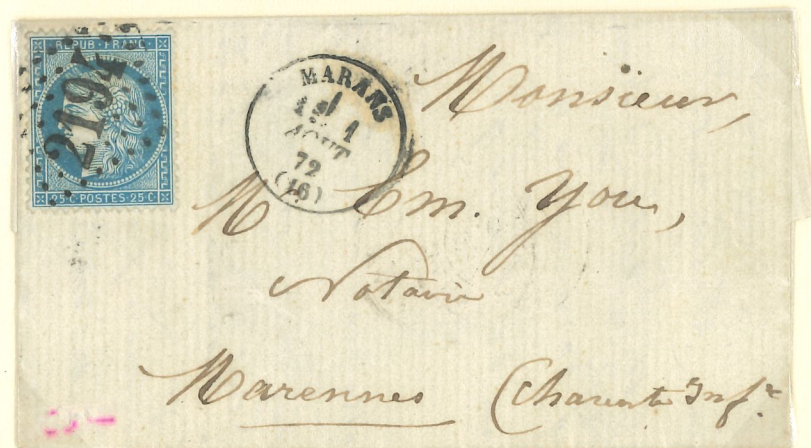 REPUB · FRANC ·
2194
25·C·POSTES·25·C
MARANS
AOUT
72
(16)
Monsieur,
M Em. You,
Notaire
Marennes (Charente Infre